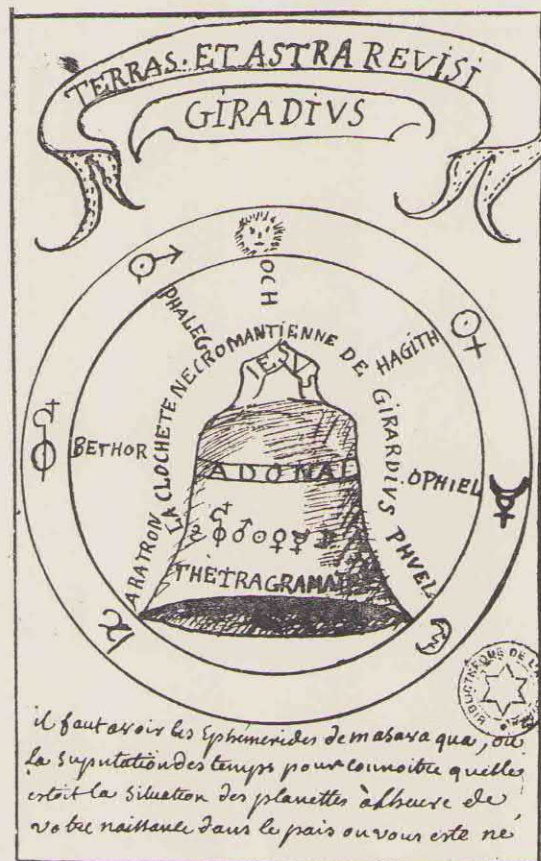 TERRAS. ET ASTRA REVISI
GIRADIVS
OCH
PHALEG
HAGITH
BETHOR
OPHIEL
ARATRON
PHVEL
LA CLOCHETE NECROMANTIENNE DE GIRARDIVS
IESV
ADONAI
THETRAGRAMAT
BIBLIOTHEQUE DE L'A
il faut avoir les Ephemerides de masara qua, ou
La suputation des temps pour connoitre quelle
estoit la situation des planettes à lheure de
votre naissance dans le pais ou vous este né